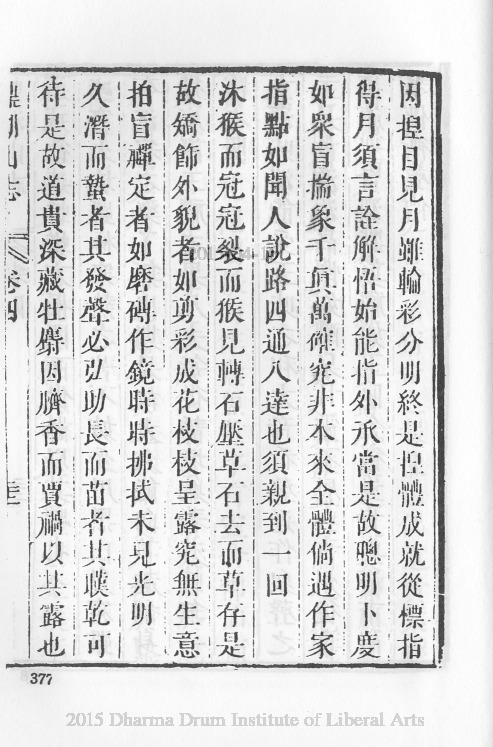 因揑目見月雖輪彩分明終是揑體成就從標指
得月須言詮解悟始能指外承當是故聰明卜度
如衆盲揣象千眞萬確究非本來全體倘遇作家
指點如聞人說路四通八達也須親到一回
沐猴而冠冠裂而猴見轉石壓草石去而草存是
故矯飾外貌者如剪彩成花枝枝呈露究無生意
拍盲禪定者如磨磚作鏡時時拂拭未見光明
久潛而蟄者其發聲必弘助長而苗者其嘆乾可
待是故道貴深藏牡麝因臍香而賈禍以其露也
湖山志 卷四
377
2015 Dharma Drum Institute of Liberal Arts